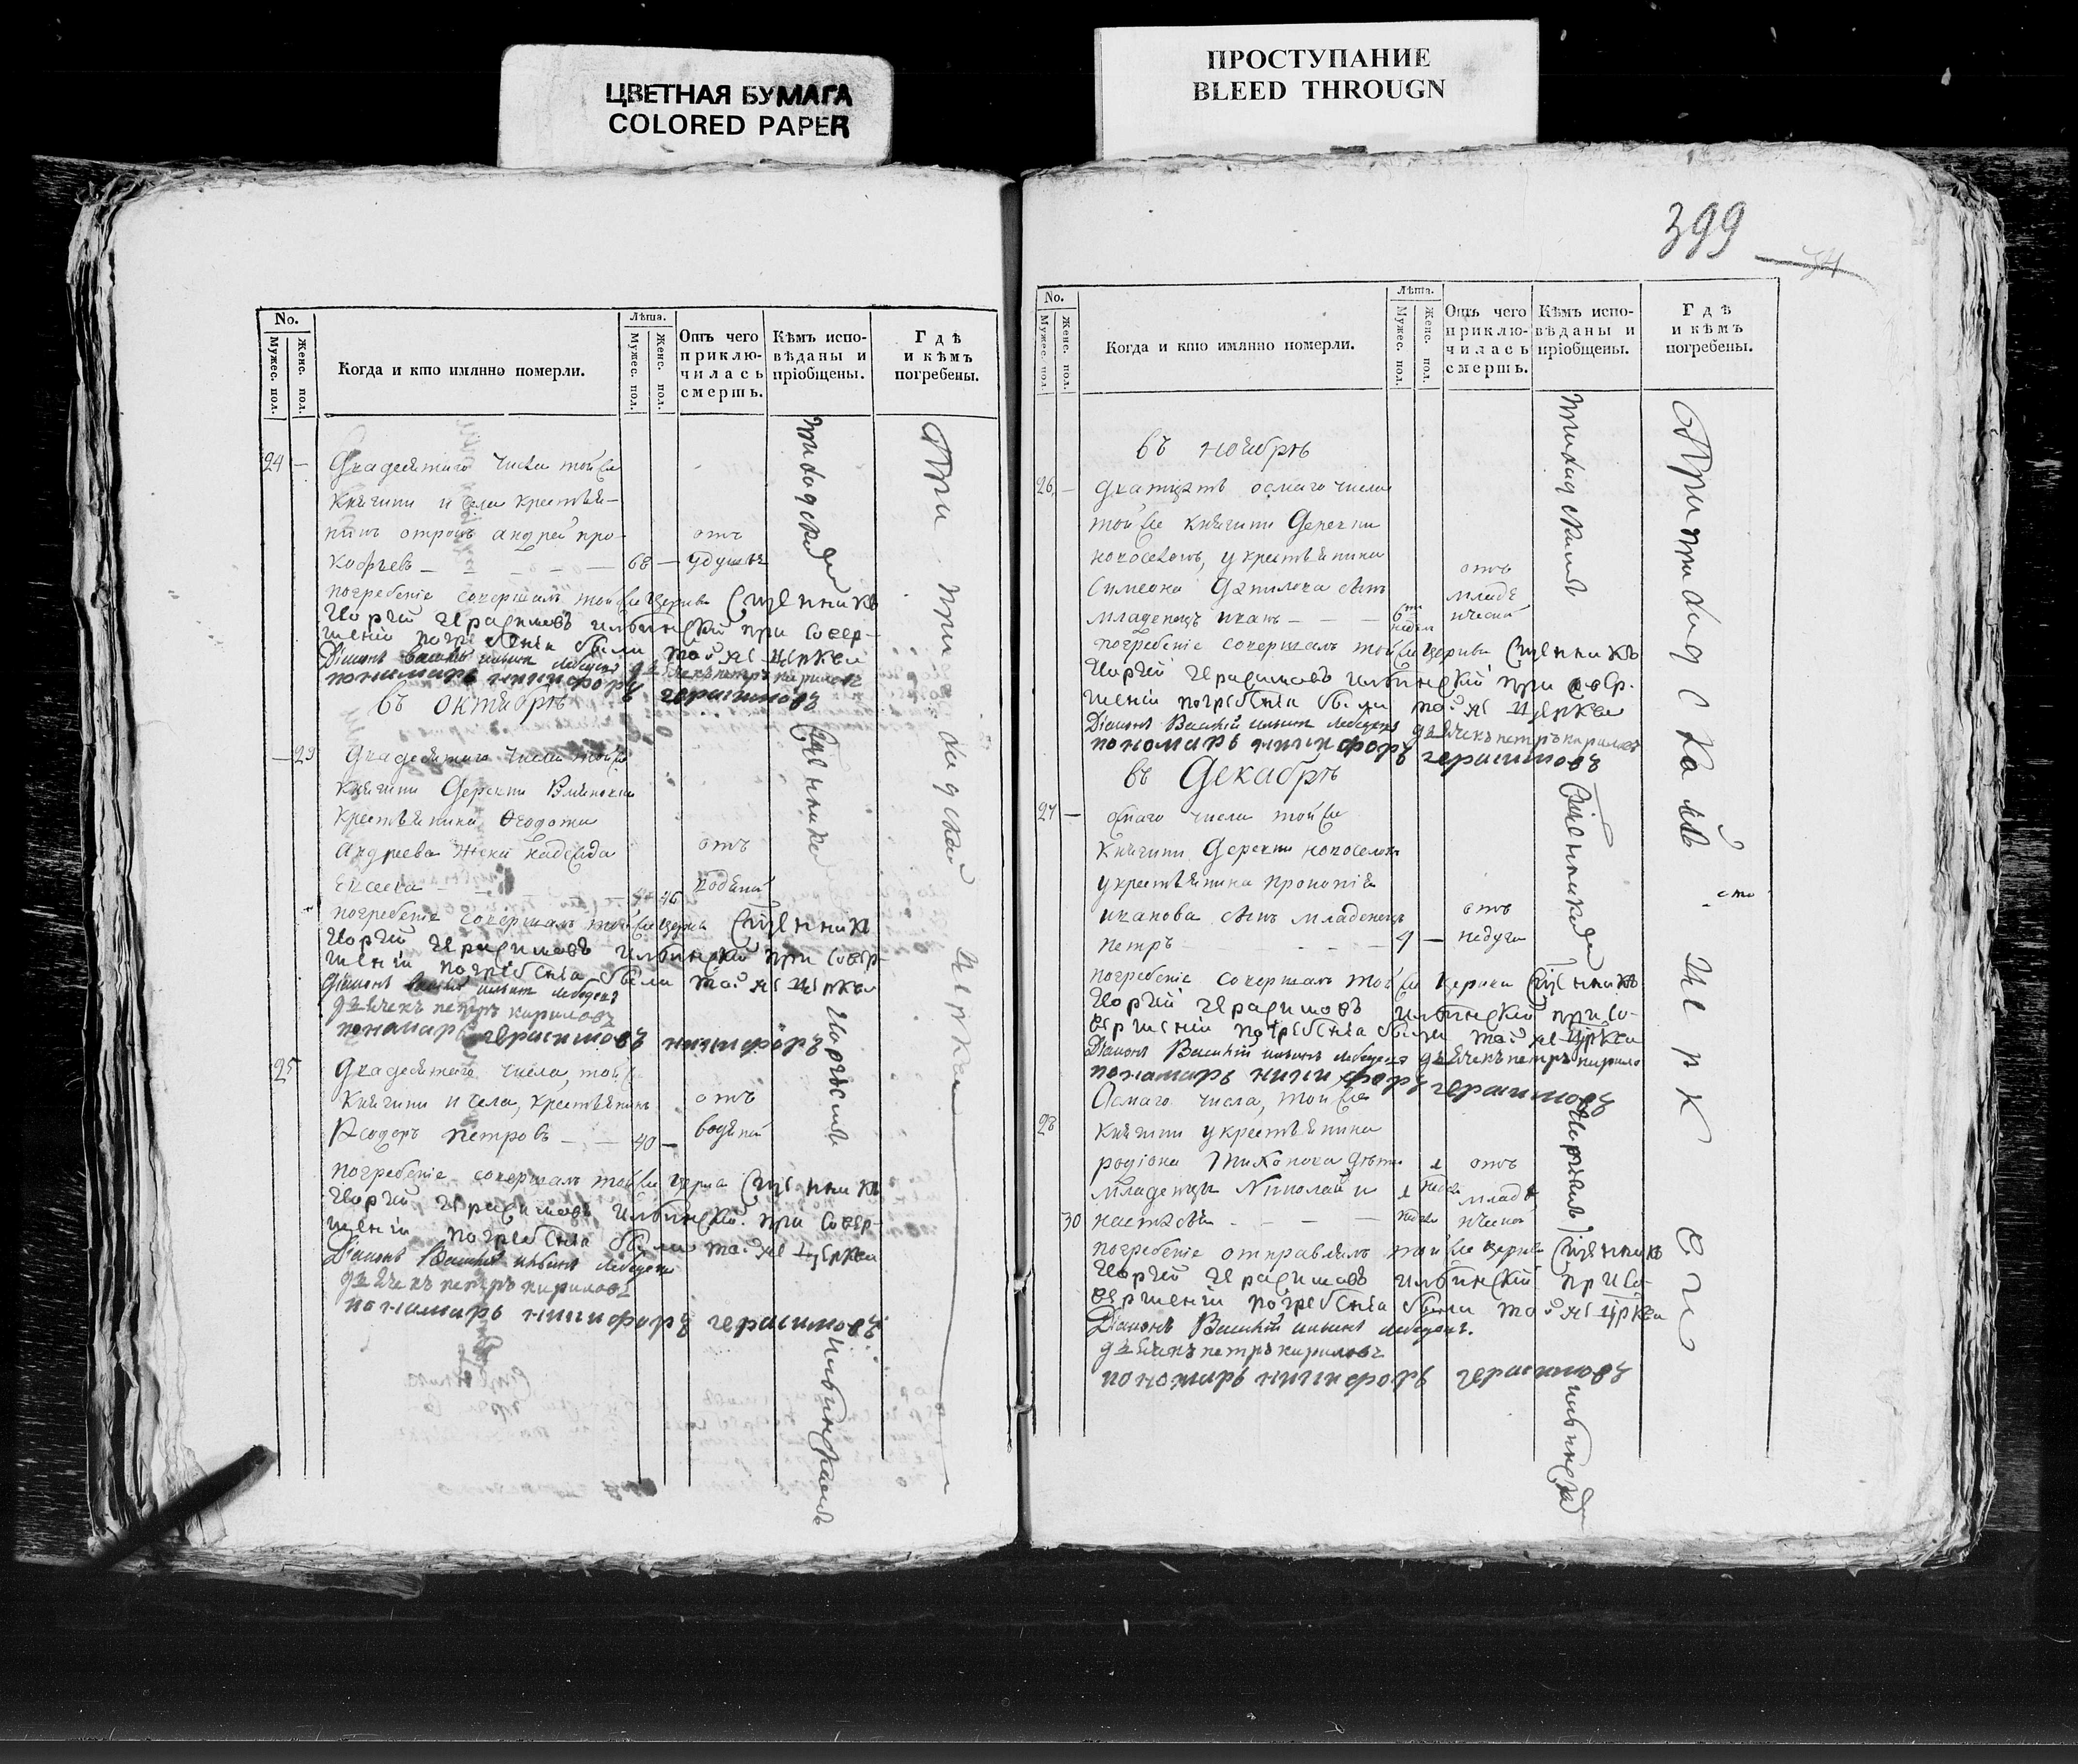 ЦВЕТНАЯ БУМАГА
COLORED PAPER
ПРОСТУПАНИЕ
BLEED THROUGN
399
No.
Мужес. пол.
Женс. пол.
Когда и кто имянно померли.
Лѣта.
Мужес. пол.
Женс. пол.
Отъ чего приклю-
чилась смерть.
Кѣмъ испо-
вѣданы и
пріобщены.
Гдѣ
и кѣмъ
погребены.
24 —
Двадесятаго числа той же
Княгини и села крестья-
нинъ отрокъ андрей про-
кофьевъ — 68 — отъ удушья
погребеніе совершалъ той же церкви священникъ
Георгій Герасимовъ Ильинскій при совер-
шеніи погребенія были той же церкви
Діаконъ Василій ильинъ лебедевъ дьячекъ петръ кириловъ
пономарь никифоръ герасимовъ
въ октябрѣ
— 29
Двадесятаго числа той же
Княгини Деревни
крестьянина Ѳеодота
Андреева жена надежда
46 отъ водяной
погребеніе совершалъ той же церкви священникъ
Георгій Герасимовъ Ильинскій при совер-
шеніи погребенія были той же церкви
Діаконъ Василій ильинъ лебедевъ
дьячекъ петръ кириловъ
пономарь герасимовъ никифоръ
25
Двадесятаго числа, той же
Княгини и села, крестьянинъ
Ѳеодоръ петровъ — 40 — отъ водяной
погребеніе совершалъ той же церкви священникъ
Георгій Герасимовъ Ильинской при совер-
шеніи погребенія были той же церкви
Діаконъ Василій ильинъ лебедевъ
дьячекъ петръ кириловъ
пономарь никифоръ герасимовъ
священникомъ Георгіемъ Ильинскимъ
При приходской церкви
No.
Мужес. пол.
Женс. пол.
Когда и кто имянно померли.
Лѣта.
Мужес. пол.
Женс. пол.
Отъ чего
приклю-
чилась
смерть.
Кѣмъ испо-
вѣданы и
пріобщены.
Гдѣ
и кѣмъ
погребены.
въ ноябрѣ
26 —
Дватцать осмаго числа
той же княгини Деревни
новоселокъ, у крестьянина
Симеона Данилова сынъ
младенецъ иванъ — 6ти недѣл отъ младенческой
погребеніе совершалъ той же церкви священникъ
Георгій Герасимовъ Ильинскій при совер-
шеніи погребенія были той же церкви
Діаконъ Василій ильинъ лебедевъ дьячекъ петръ кириловъ
пономарь никифоръ герасимовъ
въ Декабрѣ
27 —
числа той же
Княгини Деревни новоселокъ
у крестьянина
иванова сынъ младенецъ
петръ — отъ недуга
погребеніе совершалъ той же церкви священникъ
Георгій Герасимовъ Ильинскій при со-
вершеніи погребенія были той же церкви
Діаконъ Василій ильинъ лебедевъ дьячекъ петръ кирило
пономарь никифоръ герасимовъ
28
Осмаго числа, той же
Княгини у крестьянина
родіона Тихонова дѣти
младенцы Николай и
30 настасья — отъ младенческой
погребеніе отправлялъ той же церкви священникъ
Георгій Герасимовъ Ильинскій при со-
вершеніи погребенія были той же церкви
Діаконъ Василій ильинъ лебедевъ.
дьячекъ петръ кириловъ
пономарь никифоръ герасимовъ
священникомъ Георгіемъ Ильинскимъ
При приходской церкви